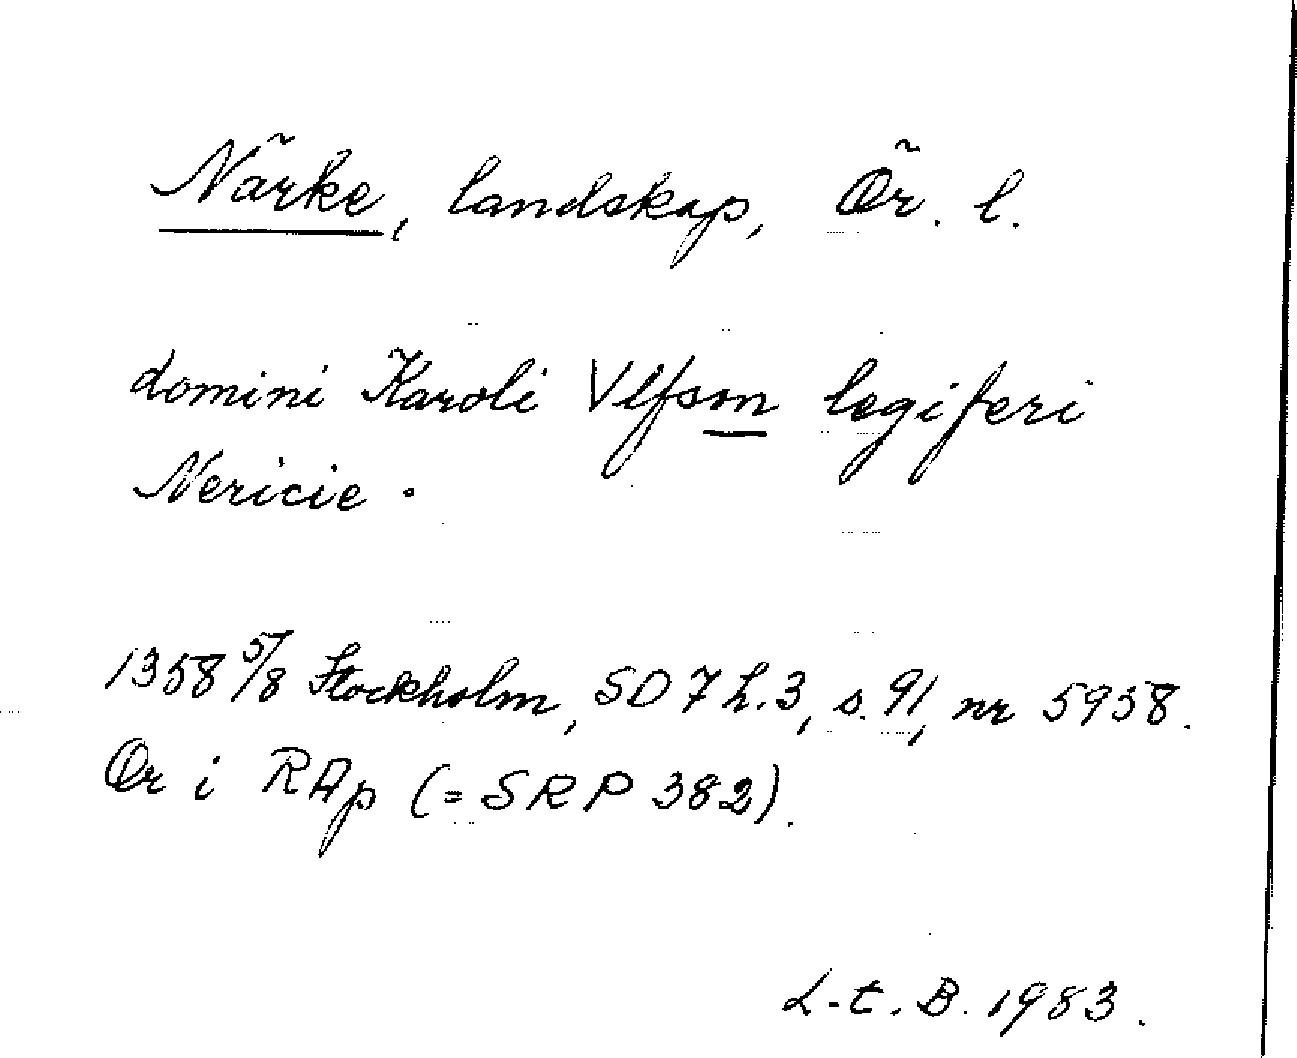 Närke, landskap, Ör. l.
domini Karoli Vlfson legiferi
Nericie.
1358 5/8 Stockholm, SD 7 h.3, s. 91, nr 5938.
Or i RAp (= SRP 382).
L-t. B. 1983.